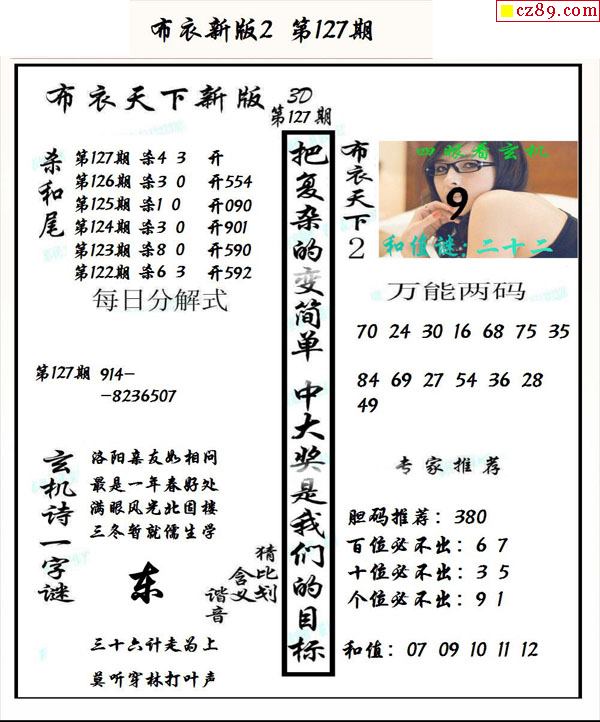 cz89.com
布衣新版2 第127期
布衣天下新版 3D
第127期
杀和尾
第127期 杀4 3 开
第126期 杀3 0 开554
第125期 杀1 0 开090
第124期 杀3 0 开901
第123期 杀8 0 开590
第122期 杀6 3 开592
每日分解式
第127期 914-
-8236507
玄机诗一字谜
洛阳亲友如相问
最是一年春好处
满眼风光北固楼
三冬暂就儒生学
东
猜比划
含义
谐音
三十六计走为上
莫听穿林打叶声
把复杂的变简单 中大奖是我们的目标
布衣天下2
四眼看玄机
9
和值谜:二十二
万能两码
70 24 30 16 68 75 35
84 69 27 54 36 28
49
专家推荐
胆码推荐：380
百位必不出：6 7
十位必不出：3 5
个位必不出：9 1
和值：07 09 10 11 12